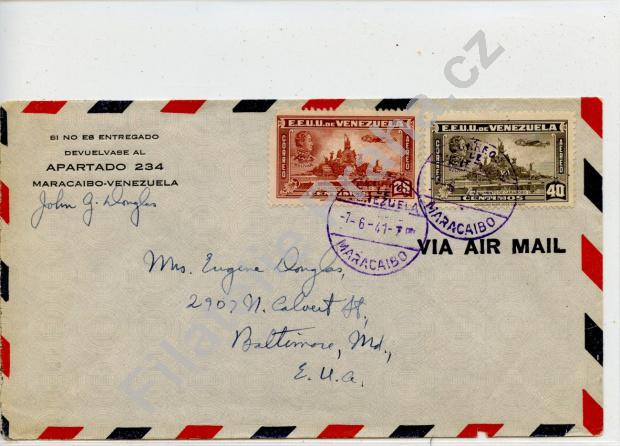 SI NO ES ENTREGADO
DEVUELVASE AL
APARTADO 234
MARACAIBO-VENEZUELA
John G. Douglas
E.E.U.U. DE VENEZUELA
CORREO
AEREO
25
E.E.U.U. DE VENEZUELA
CORREO
AEREO
CENTIMOS
40
VENEZUELA
-7-6-41-7
MARACAIBO
CORREO
MARACAIBO
VIA AIR MAIL
Mrs. Eugene Douglas,
2907 N. Calvert St,
Baltimore, Md.,
E.U.A.
Filatelie Praha.cz